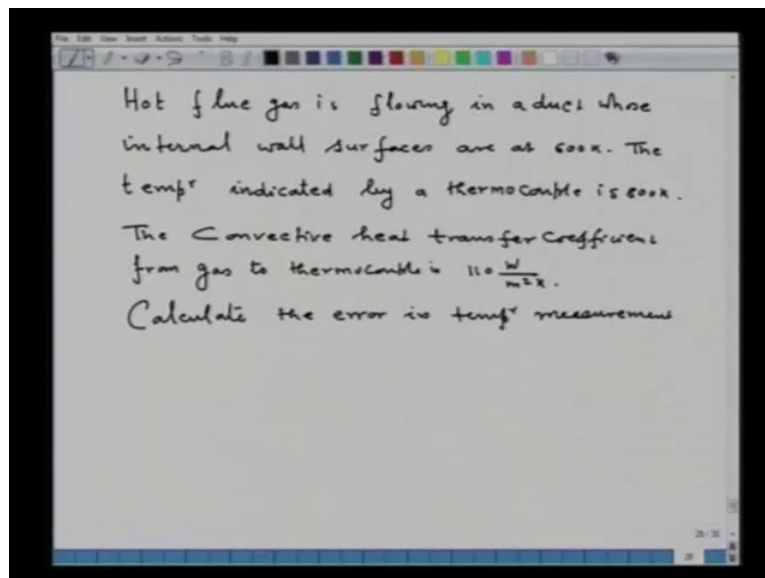 File Edit View Insert Actions Tools Help
Hot flue gas is flowing in a duct whose
internal wall surfaces are at 600K. The
tempr indicated by a thermocouple is 800K.
The Convective heat transfer coefficient
from gas to thermocouple is 110 W/m²K.
Calculate the error in tempr measurement